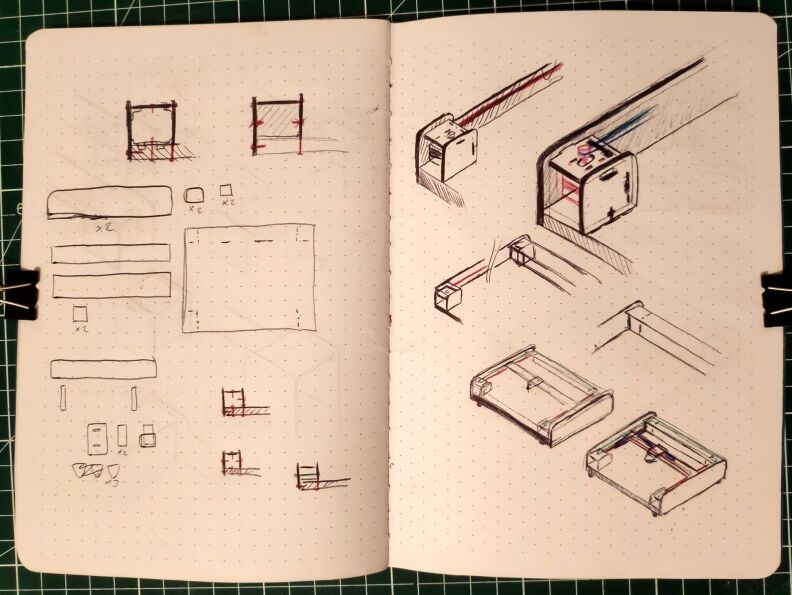 x2
x2
x2
x2
x2
x3